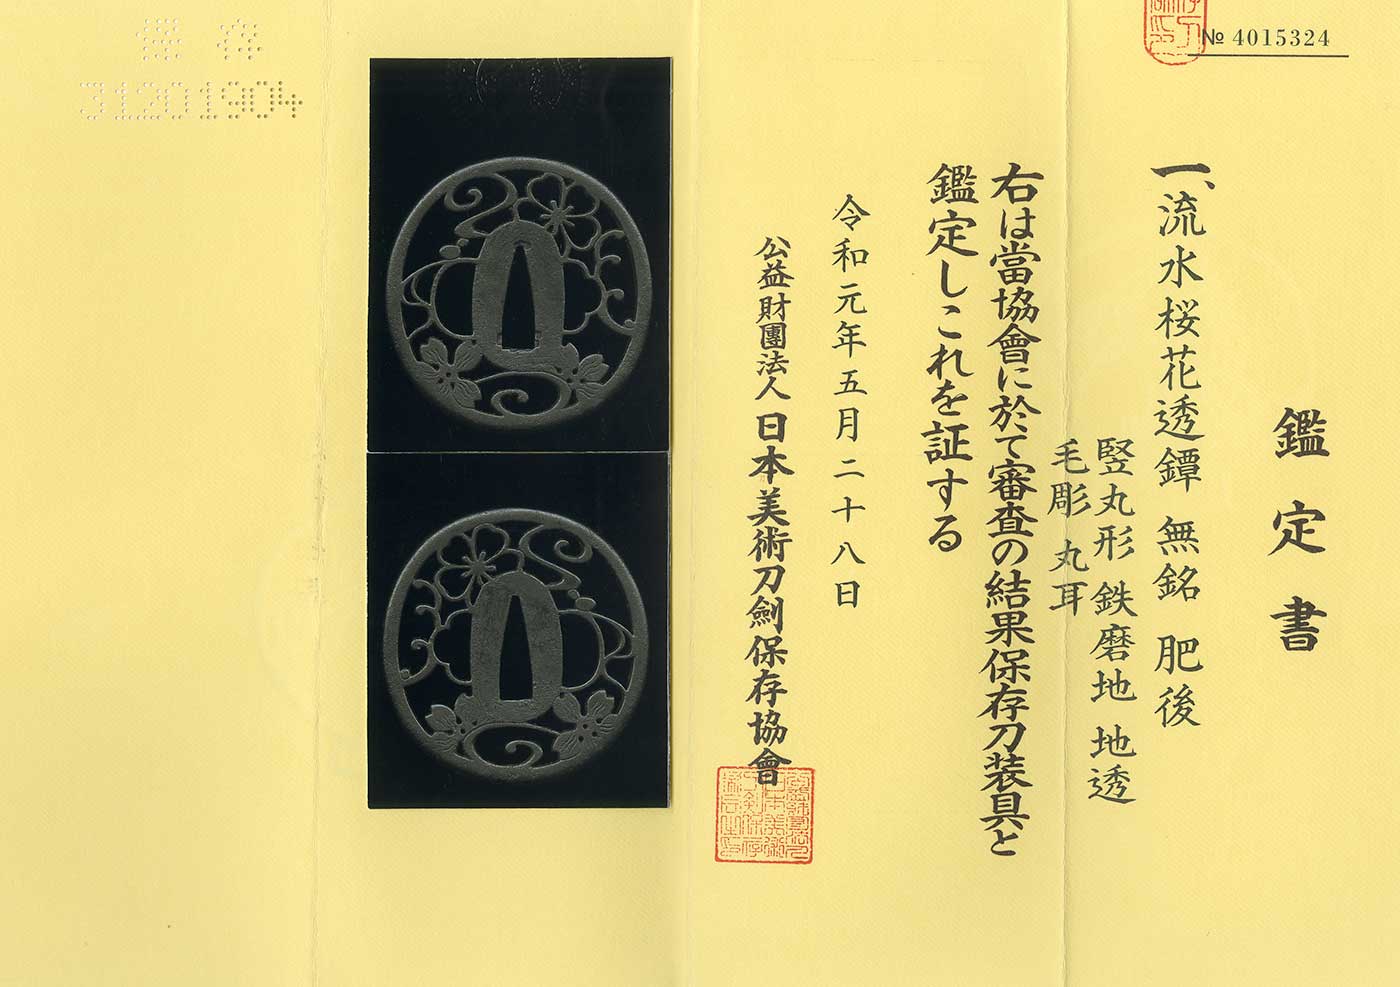 № 4015324
鑑定書
一、流水桜花透鐔 無銘 肥後
竪丸形 鉄磨地 地透
毛彫 丸耳
右は當協會に於て審査の結果保存刀装具と
鑑定しこれを証する
令和元年五月二十八日
公益財團法人 日本美術刀劍保存協會
保存
31201904